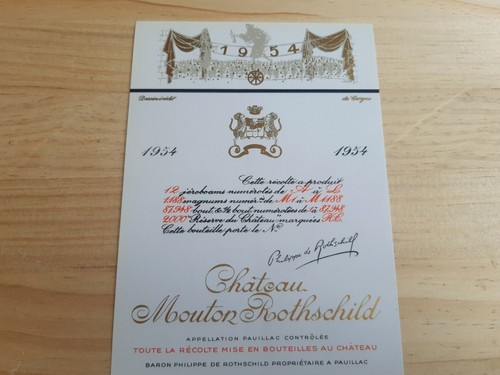 1954
Dessin inédit de Carzou
1954 1954
Cette récolte a produit
12 jéroboams numérotés de A à L
1.188 magnums numér.és de M1 à M 1188
bout. & ½ bout. numérotées de à
2000 "Réserve du Château" marquées R.C.
Cette bouteille porte le N.o
Philippe de Rothschild
Château
Mouton Rothschild
APPELLATION PAUILLAC CONTRÔLÉE
TOUTE LA RÉCOLTE MISE EN BOUTEILLES AU CHÂTEAU
BARON PHILIPPE DE ROTHSCHILD PROPRIÉTAIRE A PAUILLAC